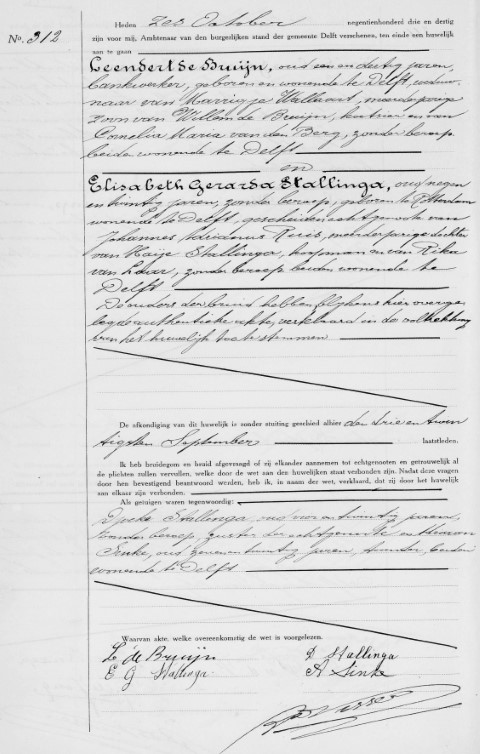 No. 312
Heden zes October negentienhonderd drie en dertig
zijn voor mij, Ambtenaar van den burgerlijken stand der gemeente Delft verschenen, ten einde een huwelijk
aan te gaan
Leendert de Bruijn, oud een en dertig jaren,
bankwerker, geboren en wonende te Delft, weduw-
naar van Marrigje Wellaart, meerderjarige
zoon van Willem de Bruijn, en van
Cornelia Maria van den Berg, zonder beroep
beiden wonende te Delft
en
Elisabeth Gerarda Stallinga, oud negen
en twintig jaren, zonder beroep, geboren te Rotterdam
wonende te Delft, gescheiden echtgenoote van
Johannes Adrianus meerderjarige dochter
van Haije Stallinga, koopman en van Rika
van Laar, zonder beroep beiden wonende te
Delft
De ouders der bruid hebben blijkens hier overge-
legde authentieke akte, verklaard in de voltrekking
van het huwelijk toe te stemmen
De afkondiging van dit huwelijk is zonder stuiting geschied alhier den drie en twin
tigsten September laatstleden.
Ik heb bruidegom en bruid afgevraagd of zij elkander aannemen tot echtgenooten en getrouwelijk al
de plichten zullen vervullen, welke door de wet aan den huwelijken staat verbonden zijn. Nadat deze vragen
door hen bevestigend beantwoord werden, heb ik, in naam der wet, verklaard, dat zij door het huwelijk
aan elkaar zijn verbonden.
Als getuigen waren tegenwoordig:
Stallinga, oud vier en twintig jaren,
zonder beroep, zuster der echtgenoote en
Sinke, oud zeven en twintig jaren, beiden
wonende te Delft
Waarvan akte, welke overeenkomstig de wet is voorgelezen.
L de Bruijn D Stallinga
E G Stallinga A Sinke